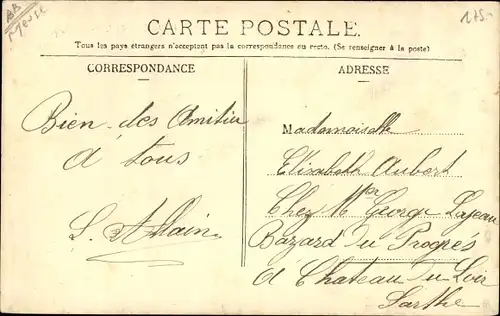 CARTE POSTALE
Tous les pays étrangers n'acceptent pas la correspondance au recto. (Se renseigner à la poste)
CORRESPONDANCE
ADRESSE
Bien des Amitiés
à tous
S. Allain
Mademoiselle
Elisabeth Aubert
Chez Mr George Lajeau
Bazard du Progrès
à Chateau du Loir
Sarthe